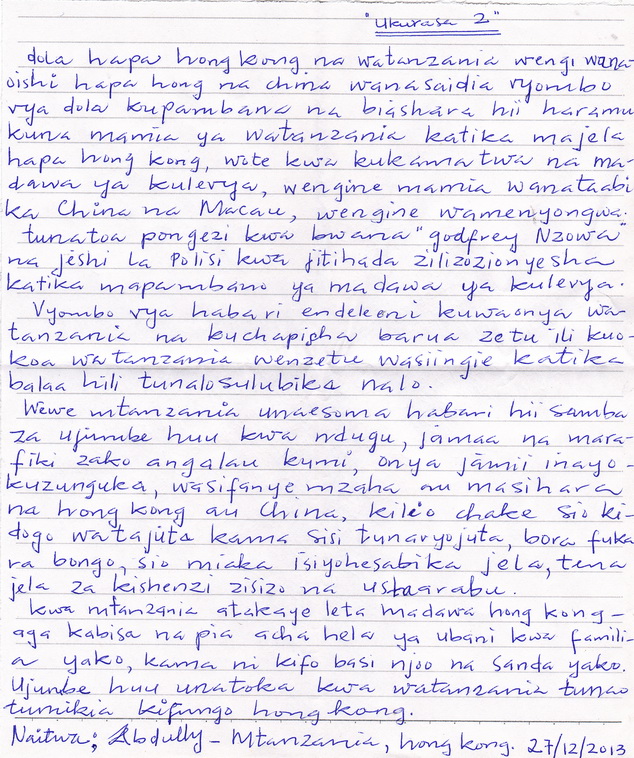 "Ukurasa 2"
dola hapa hong kong na watanzania wengi wana-
oishi hapa hong na china wanasaidia vyombo
vya dola kupambana na biashara hii haramu
kuna mamia ya watanzania katika majela
hapa hong kong, wote kwa kukamatwa na ma-
dawa ya kulevya, wengine mamia wanataabi
ka China na Macau, wengine wamenyongwa.
tunatoa pongezi kwa bwana "godfrey Nzowa"
na jeshi la Polisi kwa jitihada zilizozionyesha
katika mapambano ya madawa ya kulevya.
Vyombo vya habari endeleeni kuwaonya wa-
tanzania na kuchapisha barua zetu ili kuo-
koa watanzania wenzetu wasiingie katika
balaa hili tunalosulubika nalo.
Wewe mtanzania unaesoma habari hii samba
za ujumbe huu kwa ndugu, jamaa na mara-
fiki zako angalau kumi, onya jamii inayo-
kuzunguka, wasifanye mzaha au masihara
na hong kong au China, kilio chake sio ki-
dogo watajuta kama sisi tunavyojuta, bora fuka
ra bongo, sio miaka isiyohesabika jela, tena
jela za kishenzi zisizo na ustaarabu.
kwa mtanzania atakaye leta madawa hong kong-
aga kabisa na pia acha hela ya ubani kwa famili-
a yako, kama ni kifo basi njoo na sanda yako.
Ujumbe huu unatoka kwa watanzania tunao
tumikia kifungo hong kong.
Naitwa; Abdully - Mtanzania, hong kong. 27/12/2013